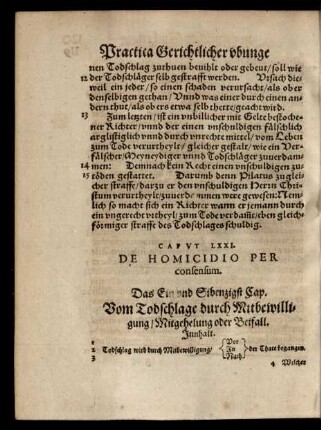 Practica Gerichtlicher vbunge
nen Todschlag zuthuen beuihlt oder gebeut/ soll wie
12 der Todschläger selb gestrafft werden. Vrsach die-
weil ein jeder/ so einen schaden verursacht/ als ob er
denselbigen gethan/ Vnnd was einer durch einen an-
dern thut/ als ob ers etwa selb thette/ geacht wird.
13 Zum letzten/ ist ein vnbillicher mit Gelte bestoche-
ner Richter/ vnnd der einen vnschuldigen fälschlich
arglistiglich vnnd durch vnrechte mittel/ vom Leben
zum Tode verurtheylt/ gleicher gestalt/ wie ein Ver-
fälscher/ Meyneydiger vnnd Todschläger zuuerdam-
14 men: Demnach kein Recht einen vnschuldigen zu-
15 tödten gestattet. Darumb denn Pilatus zu glei-
cher straffe/ darzu er den vnschuldigen Herrn Chri-
stum verurtheylt/ zuuerdammen were gewesen: Nem-
lich so macht sich ein Richter wann er jemann durch
ein vngerecht vrtheyl/ zum Tode verdam̃t/ eben gleich-
förmiger straffe des Todschlages schuldig.
CAPVT LXXI.
DE HOMICIDIO PER
consensum.
Das Ein vnd Sibenzigst Cap.
Vom Todschlage durch Mitbewilli-
gung/ Mitgehelung oder Beifall.
Innhalt.
1 Vor
2 Todschlag wird durch Mitbewilligung/ In der Thate begangen.
3 Nach
4 Welcher